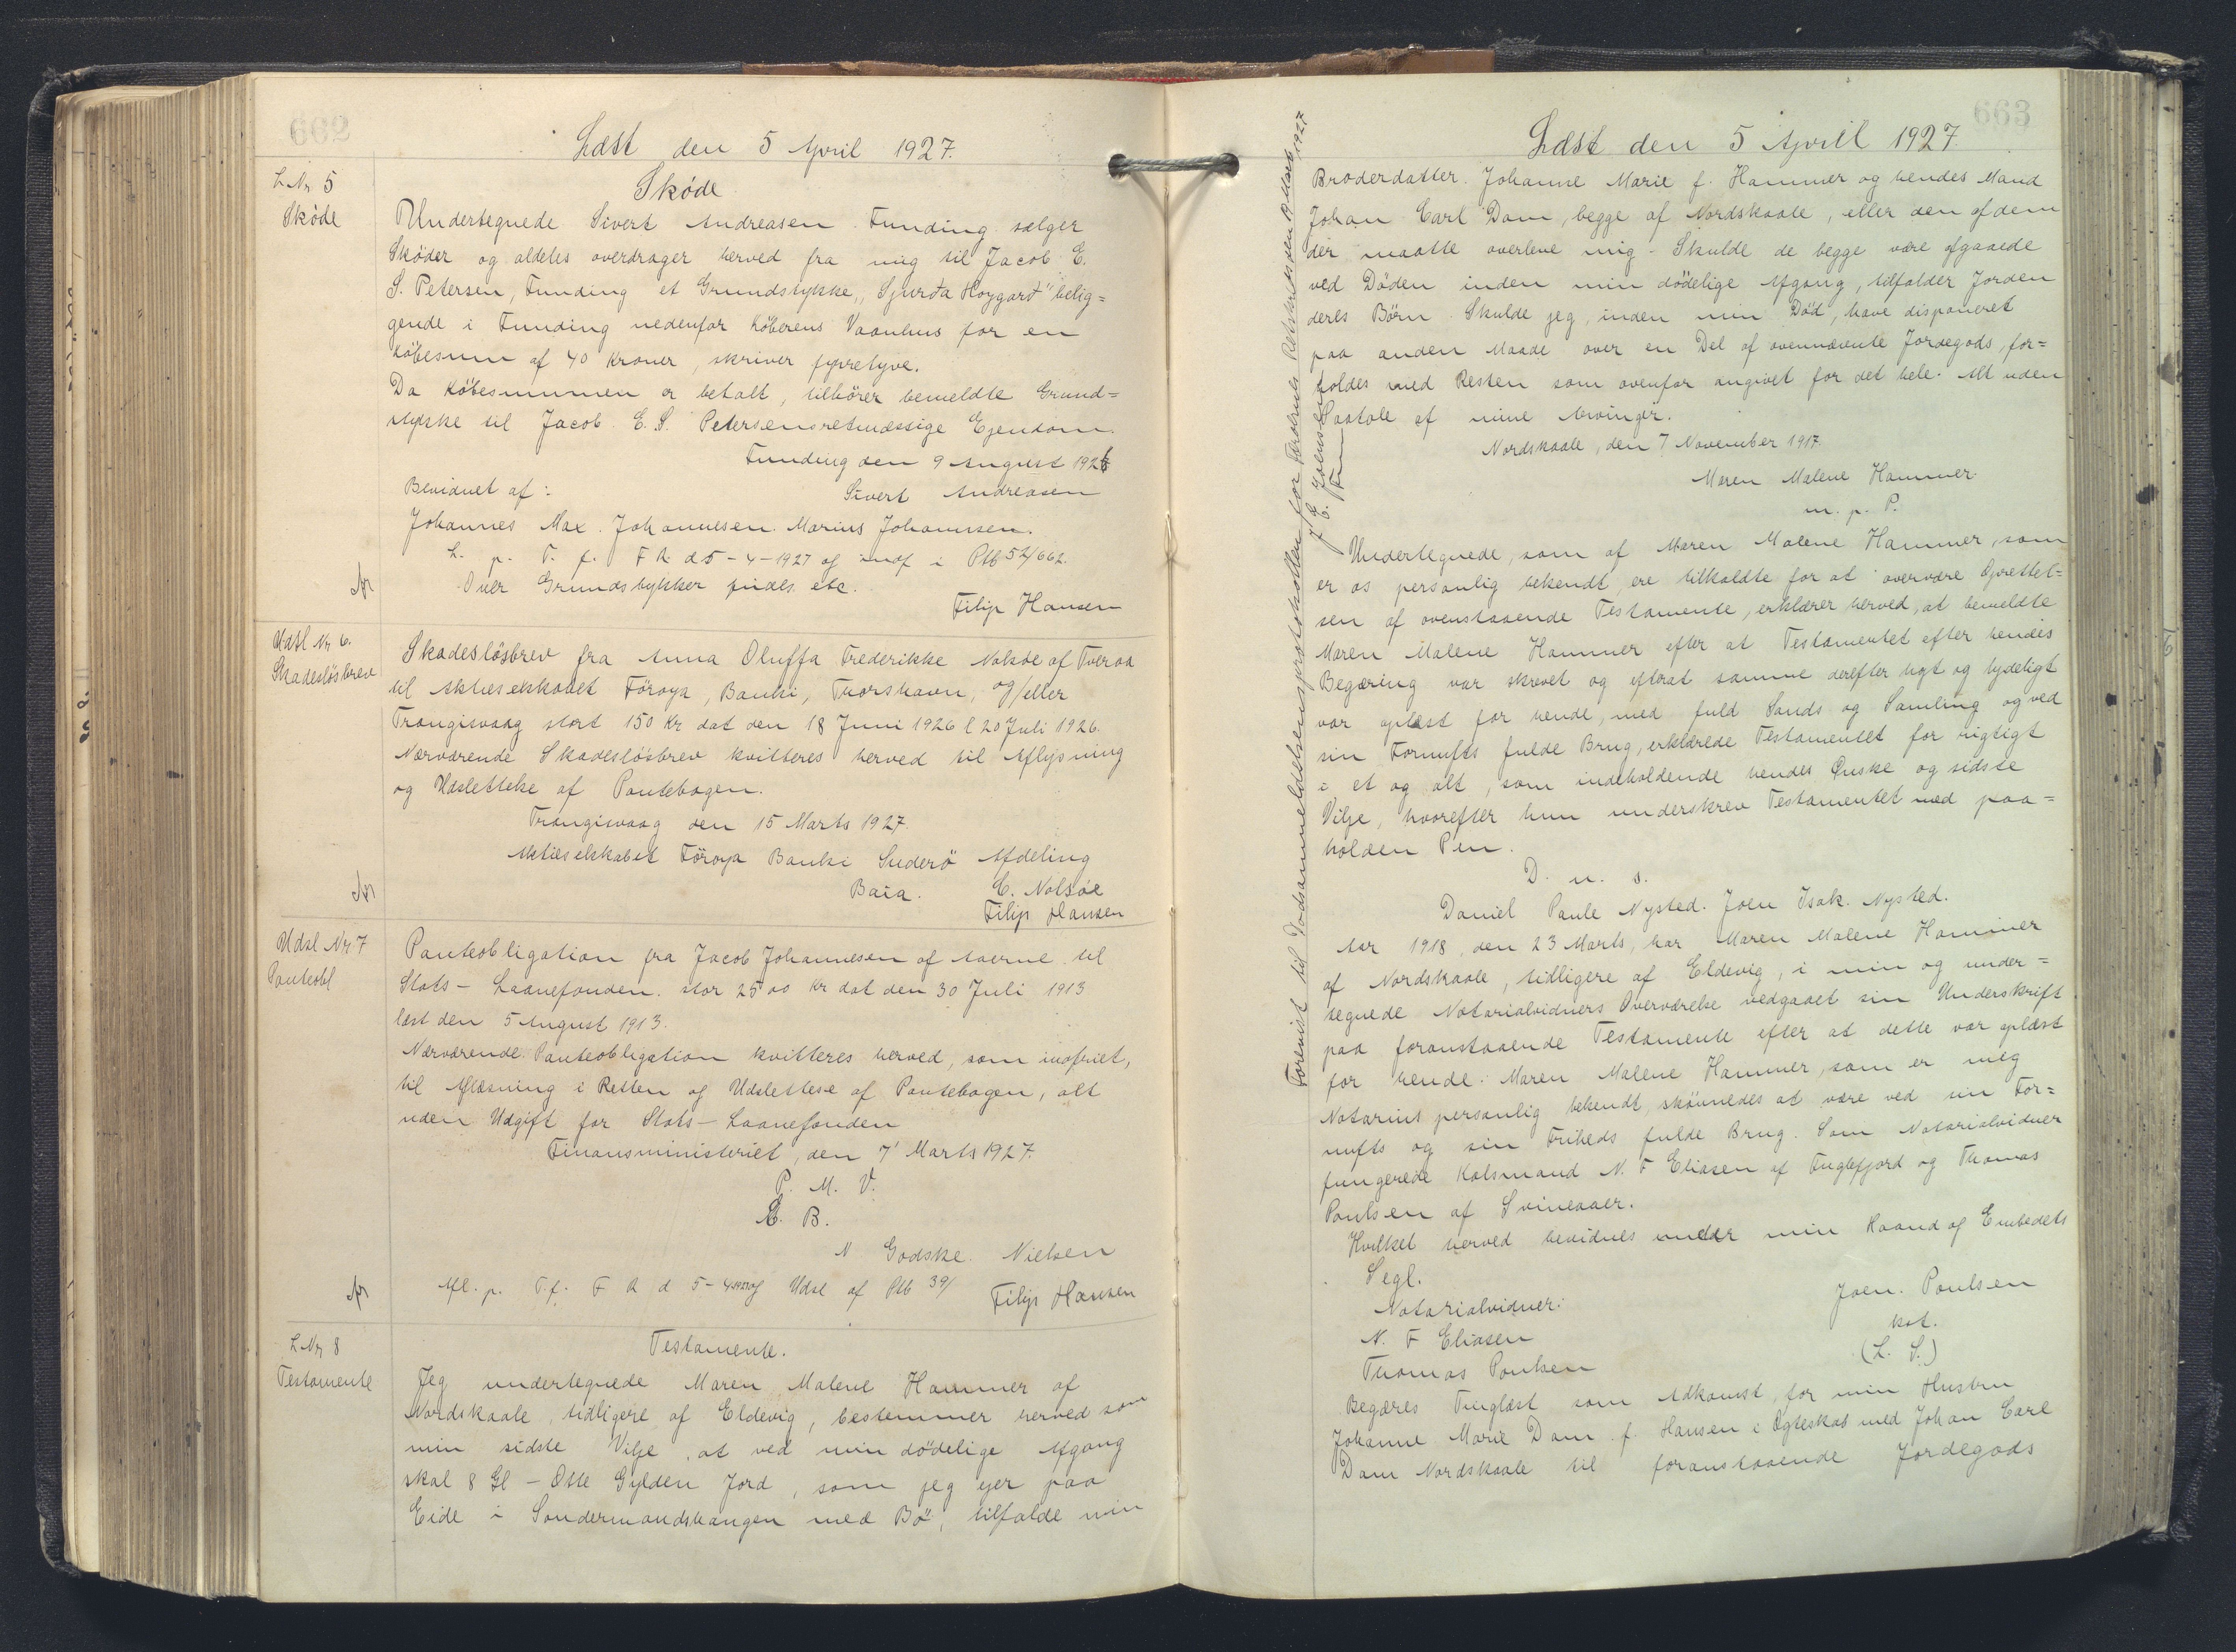 662
Læst den 5 April 1927.
L Nr 5
Sköde
Sköde
Undertegnede Sivert Andreasen Funding sælger
Sköder og aldeles overdrager herved fra mig til Jacob E.
S. Petersen, Funding et Grundstykke, „Sjurða Hoygarð" belig=
gende i Funding nedenfor Köberens Vaanhus for en
Köbesum af 40 Kroner, skriver fyrretyve.
Da Köbesummen er betalt, tilhörer bemeldte Grund=
stykke til Jacob E. S. Petersens retmæssige Ejendom.
Funding den 9 August 1926
Bevidnet af:
Sivert Andreasen
Johannes Max. Johannesen. Marius Johannesen.
L. p. T. f. F R d 5-4-1927 og indf i Ptb 52/662.
Over Grundstykker findes etc.
Filip Hansen
Udsl Nr 6.
Skadeslösbrev
Skadeslösbrev fra Anna Oluffa Frederikke Nolsöe af Tveraa
til Aktieselskabet Föroya, Banki, Thorshavn, og/eller
Trangisvaag stort 150 Kr dat den 18 Juni 1926 l 20 Juli 1926.
Nærværende Skadeslösbrev kvitteres herved til Aflysning
og Udslettelse af Pantebogen.
Trangisvaag den 15 Marts 1927.
Aktieselskabet Föroya Banki Suderö Afdeling
C. Nolsöe
Filip Hansen
Udsl Nr. 7
Panteobl
Panteobligation fra Jacob Johannesen af Aaerne til
Stats-Laanefonden. stor 2500 Kr dat den 30 Juli 1913
læst den 5 August 1913.
Nærværende Panteobligation kvitteres herved, som indfriet,
til Aflæsning i Retten og Udslettese af Pantebogen, alt
uden Udgift for Stats-Laanefonden
Finansministeriet, den 7' Marts 1927.
P. M. V.
E. B.
N Godske. Nielsen
Afl. p. T. f. F R d 5-4-1927 og Udsl af Ptb 39/
Filip Hansen
L Nr 8
Testamente
Testamente.
Jeg undertegnede Maren Malene Hammer af
Nordskaale, tidligere af Eldevig, bestemmer herved som
min sidste Vilje, at ved min dödelige Afgang
skal 8 Gl - Otte Gylden Jord, som jeg ejer paa
Eide i Sondermandshangen med Bö, tilfalde min
663
Læst den 5 April 1927.
Broderdatter. Johanne Marie f. Hammer og hendes Mand
Johan Carl Dam, begge af Nordskaale, eller den af dem
der maatte overleve mig. Skulde de begge være afgaaede
ved Döden inden min dödelige Afgang, tilfalder Jorden
deres Börn. Skulde jeg, inden min Död, have disponeret
paa anden Maade over en Del af ovennævnte Jordegods, for=
holdes med Resten som ovenfor angivet for det hele. Alt uden
Paatale af mine Arvinger.
Nordskaale, den 7 November 1917.
Maren Malene Hammer
m. p. P.
Undertegnede, som af Maren Malene Hammer, som
er os personlig bekendt, ere tilkaldte for at overvære Oprettel=
sen af ovenstaaende Testamente, erklærer herved, at bemeldte
Maren Malene Hammer efter at Testamentet efter hendes
Begæring var skrevet og efterat samme derefter rigt og tydeligt
var oplæst for hende, med fuld Sands og Samling og ved
sin Fornufts fulde Brug, erklærede Testamentet for rigtigt
i et og alt, som indeholdende hendes Önske og sidste
Vilje, hvorefter hun underskrev Testamentet med paa=
holden Pen.
D. u. s.
Daniel Paule Nysted. Joen Isak. Nysted.
Aar 1918, den 23 Marts, har Maren Malene Hammer
af Nordskaale, tidligere af Eldevig, i min og under=
tegnede Notarialvidners Overværelse vedgaaet sin Underskrift
paa foranstaaende Testamente efter at dette var oplæst
for hende. Maren Malene Hammer, som er mig
Notarius personlig bekendt, skönnedes at være ved sin For=
nufts og sin Friheds fulde Brug. Som Notarialvidner
fungerede Kolsmand N. F Eliasen af Fuglefjord og Thomas
Poulsen af Svineaaer.
Hvilket herved bevidnes under min Haand og Embedets
Segl.
Notarialvidner:
Joen. Poulsen
kst.
N. F Eliasen
(L. S.)
Thomas Poulsen
Begæres Tinglæst som Adkomst for min Hustru
Johanne Marie Dam f. Hansen i Ægteskab med Johan Carl
Dam Nordskaale til foranstaaende Jordegods
Forevist til Dödsanmeldelsesprotokollen for Færöernes Retskreds den 12 Marts 1927
J. E. Joensen